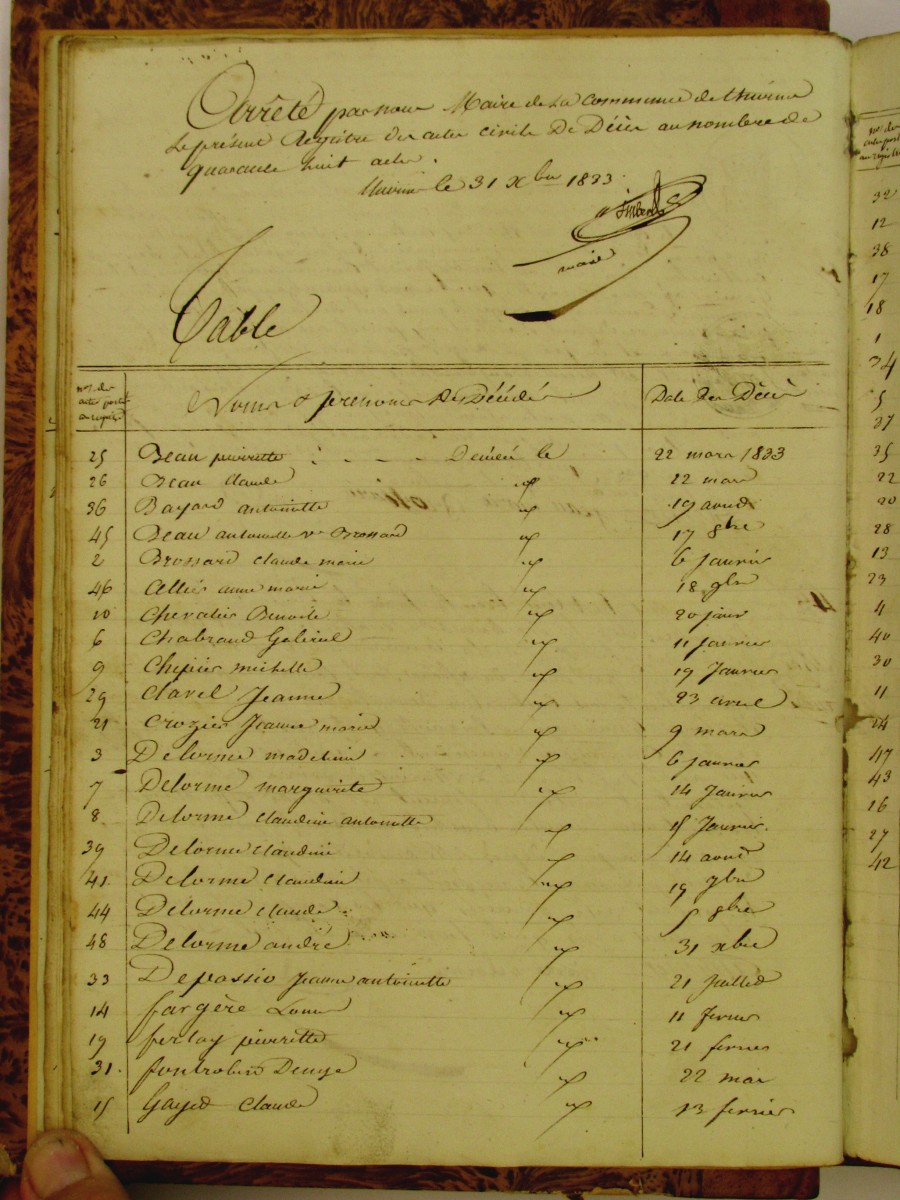 Arrêté par nous Maire de la commune de
Le présent Registre des actes civils De Décès au nombre de
quarante huit actes.
le 31 Xbre 1833
Imbert
maire
Table
nos des
actes portés
au registre
Noms & prenoms des Décédés
Date des Décès
25 Beau pierrette : - - - Décédée le 22 mars 1833
26 Beau claude 22 mars
36 Bayard antoinette 19 aout
45 Beau antoinette ve Brossard 17 9bre
2 Brossard claude marie 6 Janvier
46 allier anne marie 18 9bre
10 Chevalier Benoite 20 janv
6 Chabrand Gabriel 11 Janvier
9 Chipier michelle 19 Janvier
29 Clavel Jeanne 23 avril
21 Crozier Jeanne marie 9 mars
3 Delorme madeleine 6 janvier
7 Delorme marguerite 14 Janvier
8 Delorme claudine antoinette 15 Janvier
39 Delorme claudine 14 aout
41 Delorme claudine 19 7bre
44 Delorme claude 5 9bre
48 Delorme andré 31 xbre
33 Depassio Jeanne antoinette 21 juillet
14 fargère Louis 11 fevrier
19 ferlay pierrette 21 fevrier
31 fontrobin Denise 22 mai
15 Gayet Claude 13 fevrier
nos des
actes portés
au registre
32
12
38
17
18
1
34
5
37
35
22
20
28
13
23
4
40
30
11
24
47
43
16
27
42